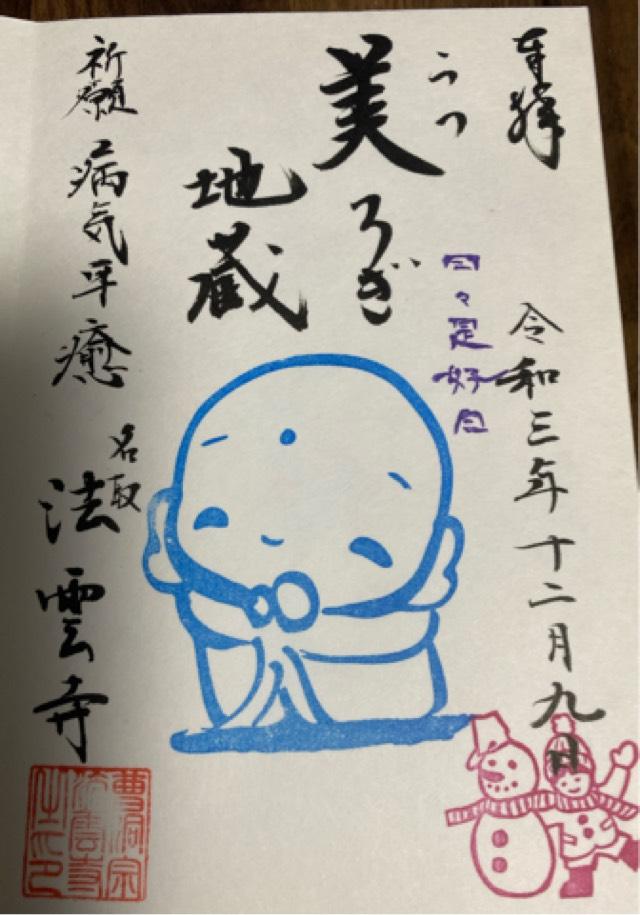 奉拝
令和三年十二月九日
日々是好日
うつ
美ろぎ
地蔵
祈願 病気平癒
名取
法雲寺
曹洞宗
法雲寺
之印